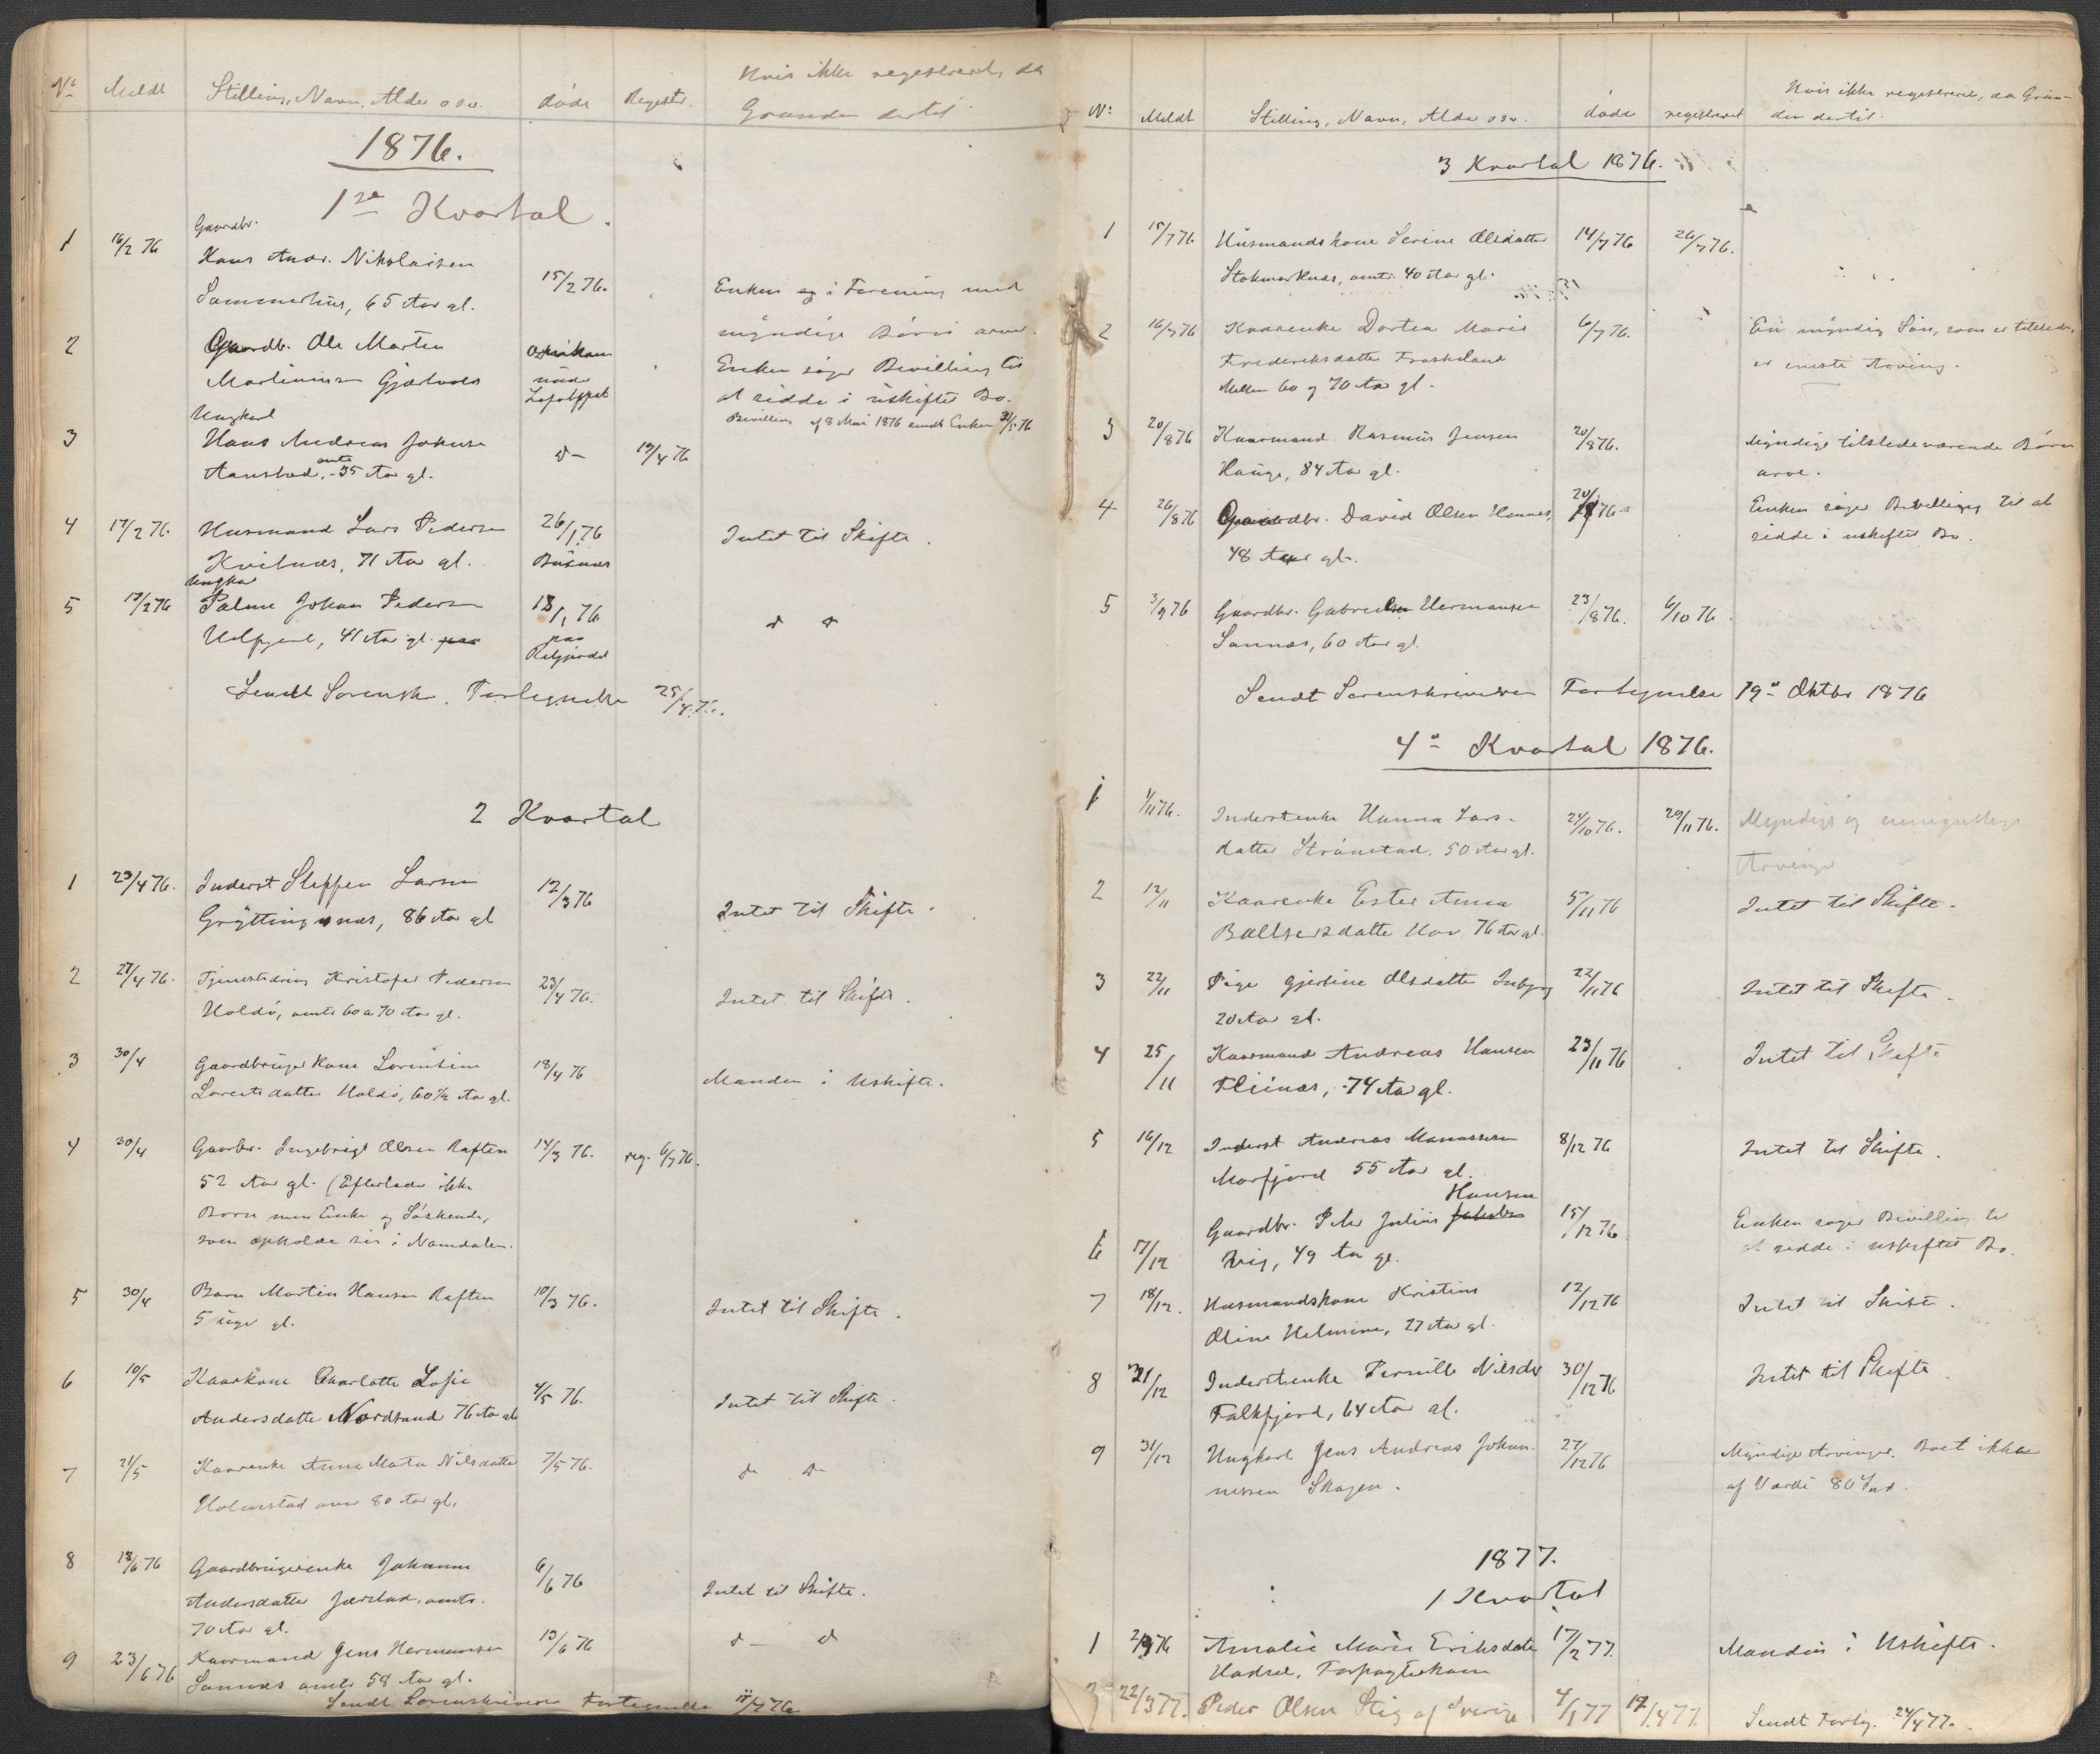 No Meldt Stilling, Navn, Alder osv. døde Registr. Hvis ikke registreret, da
Grunden dertil
1876.
1ste Kvartal.
Gaardbr.
1 16/2 76 Hans Andr. Nikolaisen
Sommerhus, 65 Aar gl. 15/2 76. Enken og i Forening med
myndige Børn arver.
2 Gaardb. Ole Martin
Martinussen Omkom under Enken søger Bevilling til
at sidde i uskiftet Bo.
Bevilling af 8 Mai 1876 sendt Enken 31/5 76
Ungkarl
3 Hans Andreas Johnsen d— 19/4 76
Aanstad, omtr. 35 Aar gl.
4 17/2 76. Husmand Lars Pedersen 26/1 76 Intet til Skifte.
Kvitnæs, 71 Aar gl. Buknæs
Ungkar
5 17/2 76 Palme Johan Pedersen 18/1 76 d d
41 Aar gl. paa
Sendt Sorensk. Fortegnelse 25/4 76.
2 Kvartal
1 23/4 76. Inderst Steffen Larsen 12/3 76 Intet til Skifte.
Gryttingnæs, 86 Aar gl
2 27/4 76. Tjenestedreng Kristofer Pedersen 23/4 76. Intet til Skifte.
Holdø, omtr 60 a 70 Aar gl.
3 30/4 Gaardbruger Kone Lorentine 18/4 76 Manden i Uskifte.
Lorentsdatter Holdø, 60½ Aar gl.
4 30/4 Gaarbr. Ingebrigt Olsen Raften 14/3 76. reg. 6/7 76.
52 Aar gl. (Efterlader ikke
Børn men Enke og Søskende,
som opholde sig i Namdalen.
5 30/4 Barn Martin Hansen Raften 10/3 76. Intet til Skifte.
5 uger gl.
6 10/5 Kaarkone Charlotte Sofie 4/5 76. Intet til Skifte.
Andersdatter Nordsand 76 Aar gl
7 21/5 Kaarenke Anne Marta Nilsdatter 7/5 76. d d
Holmstad over 80 Aar gl.
8 18/6 76 Gaardbrugerenke Johanna 6/6 76 Intet til Skifte.
Andersdatter Jørstad, omtr.
70 Aar gl.
9 23/6 76 Kaarmand Jens Hermansen 13/6 76 d— d
Sannæs omtr 58 Aar gl.
Sendt Sorenskriveren Fortegnelse 11/7 76.
No Meldt Stilling, Navn, Alder osv. døde registreret Hvis ikke registreret, da Grun-
den dertil.
3 Kvartal 1876.
1 15/7 76 Husmandskone Serine Olsdatter 14/7 76 26/7 76.
Stokmarknæs, omtr. 40 Aar gl.
2 16/7 76 Kaarenke Dortea Marie 6/7 76. En myndig Søn, som er tilstede,
Frederiksdatter er eneste Arving.
Mellem 60 og 70 Aar gl.
3 20/8 76 Kaarmand Rasmus Jensen 20/8 76. Myndige tilstedeværende Børn
Hauge, 84 Aar gl. arve.
4 26/8 76 Gaardbr. David Olsen Hennes, 20/8 76 Enken søger Bevilling til at
48 Aar gl. sidde i uskiftet Bo.
5 3/9 76 Gaardbr. Gabriel Hermansen 23/8 76. 6/10 76
Sannæs, 60 Aar gl.
Sendt Sorenskriveren Fortegnelse 19de Oktbr 1876
4de Kvartal 1876.
1 1/11 76. Inderstenke Hanna Lars- 24/10 76. 20/11 76. Myndige og umyndige
datter Straumstad, 50 Aar gl. Arvinge
2 12/11 Kaarenke Ester Anna 5/11 76 Intet til Skifte.
Baltsersdatter Hov, 76 Aar gl.
3 22/11 Pige Gjertine Olsdatter 22/11 76 Intet til Skifte.
20 Aar gl.
4 25/11 Kaarmand Andreas Hansen 23/11 76 Intet til Skifte
Flesnæs, 74 Aar gl.
5 16/12 Inderst Andreas Manassen 8/12 76 Intet til Skifte.
Morfjord 55 Aar gl.
Hansen
6 17/12 Gaardbr. Peter Julius Jakobs 15/12 76 Enken søger Bevilling til
Vig, 49 Aar gl. at sidde i uskiftet Bo.
7 18/12. Husmandskone Kristine 12/12 76 Intet til Skifte.
Oline Helmine, 27 Aar gl.
8 31/12 Inderstenke Pernille Nilsdr 30/12 76 Intet til Skifte
Falkfjord, 64 Aar gl.
9 31/12 Ungkarl Jens Andreas Johan- 27/12 76 Myndige Arvinger. Boet ikke
nessen Skagen. af Værdi 80
1877.
1 Kvartal
1 Amalie Marie Eriksdatter 17/2 77. Manden i Uskifte.
Hadsel, Forpagterkone
2 22/3 77. Peder Olsen Stig af Sverige 4/1 77 17/4 77. Sendt Forteg. 24/4 77.